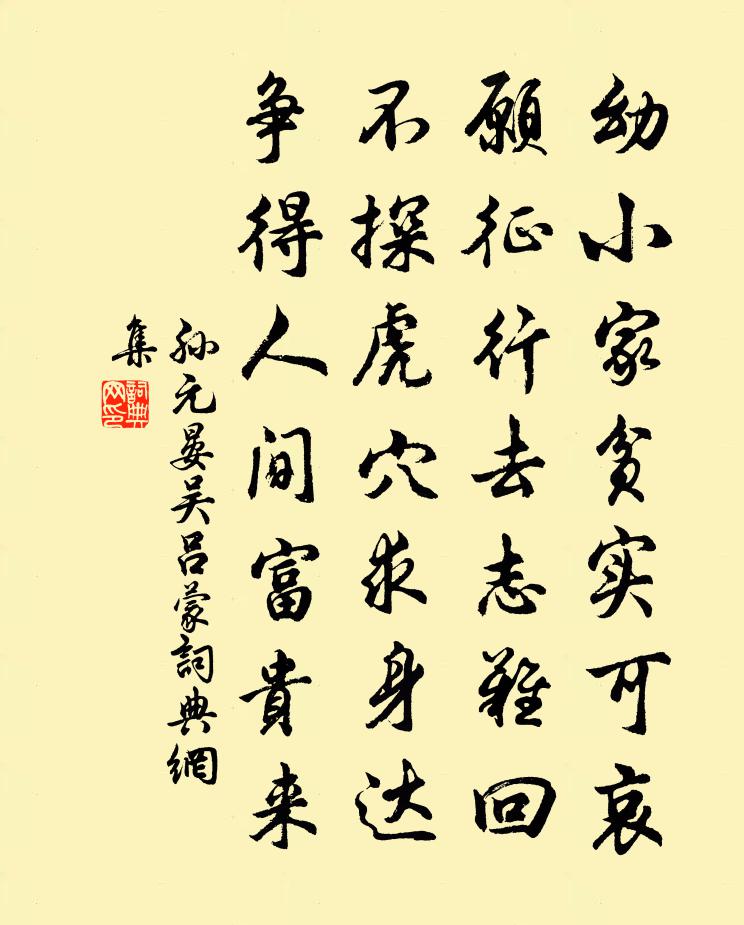 幼小家贫实可哀
願征行去志難回
不探虎穴求身达
争得人间富貴来
孙元晏吴吕蒙詞典網
集
詞典
网印